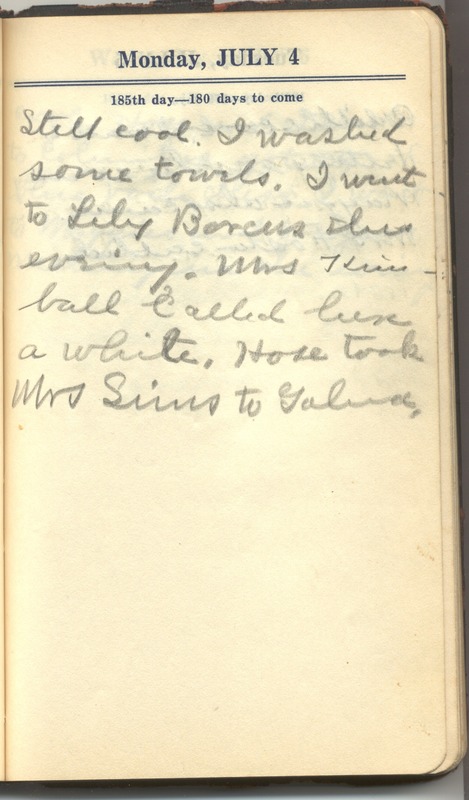 Monday, JULY 4
185th day—180 days to come
Still cool. I washed
some towels. I went
to Lily this
evening. Mrs Kim-
ball called here
a while. took
Mrs Sims to Galva.